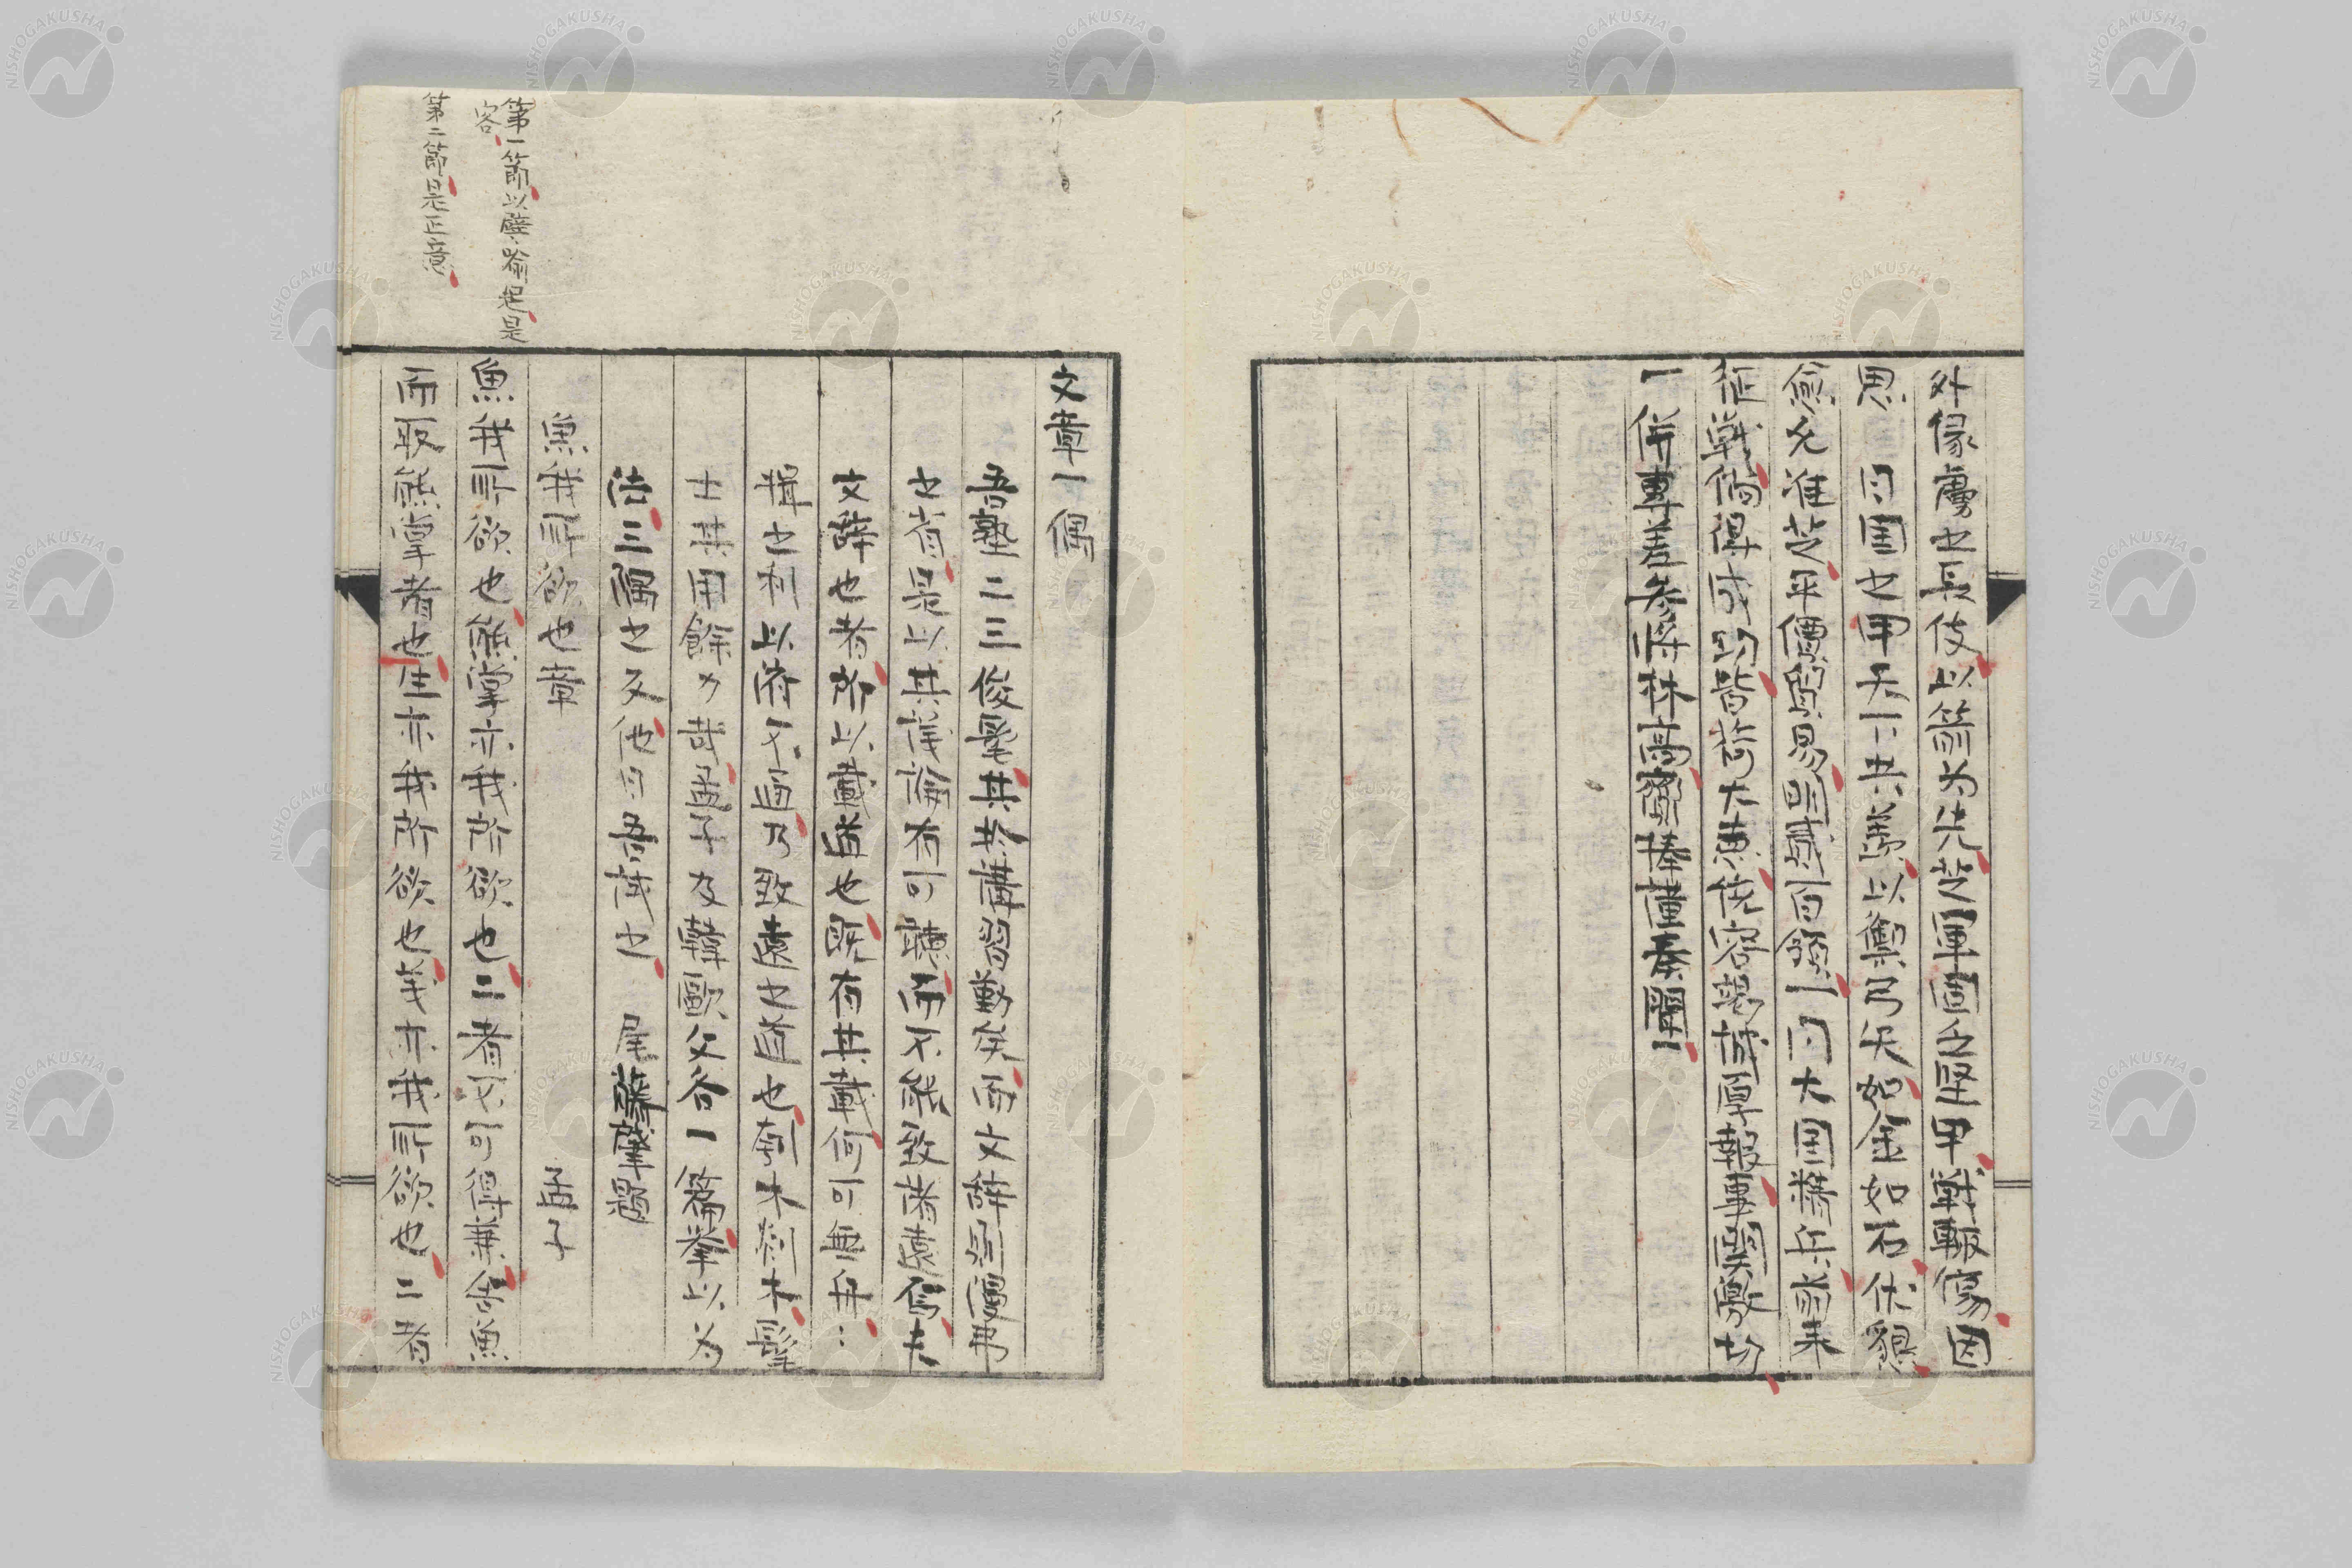 外像虜之長伎以箭为先芝軍固之堅甲戦輙傷因
思　日国之甲天下共羨以禦弓矢如金如石伏懇
俞允准芝平價貿易明誠百領一日大国精兵前来
征戦倘得成功皆荷大恵統容懇誠厚報事竣繳功
一　併専差参将林高齎捧謹奏聞一
文章一偶
吾塾二三俊髦其於講習勤矣而文辞則漫弗
之省是以其議論有可聴而不能致諸遠焉夫
文辞也者所以載道也既有其載何可無舟
楫之利以済不通乃致遠之道也刳木剡木髦
士其用餘力哉孟子及韓歐父各一篇挙以为
法三隅之反他日吾試之　尾藤肇題
魚我所欲也章　孟子
魚我所欲也熊掌亦我所欲也二者不可得兼舎魚
而取熊掌者也生亦我所欲也義亦我所欲也二者
第一節以譬喩起是
客
第二節是正意
NISHOGAKUSHA